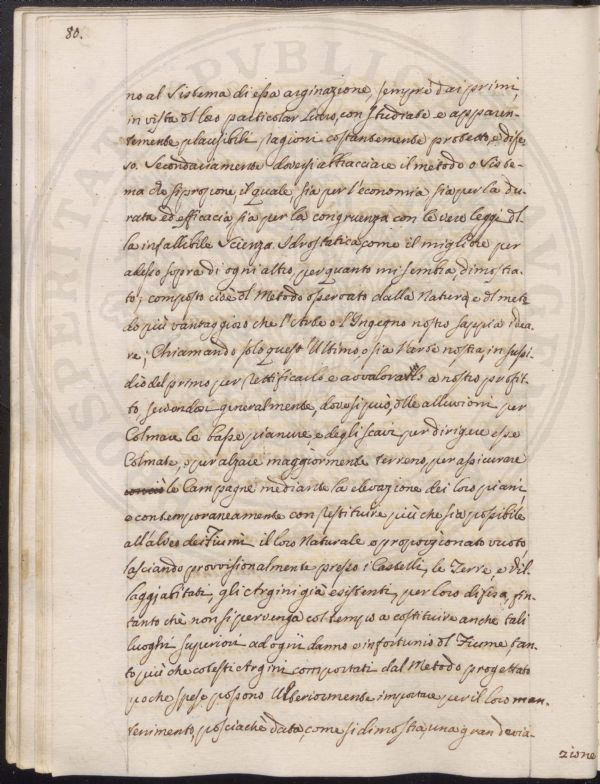 80.
no al Sistema di essa arginazione, sempre dai primi,
in vista del loro particolar Lucro, con studiate e apparen-
temente plausibili ragioni costantemente protetto, e dife-
so. Secondariamente doversi abbracciare il metodo o Siste-
ma che si propone, il quale, sia per l'economia sia per la du-
rata ed efficacia, sia per la congruenza con le vere leggi del-
la infallibile Scienza Idrostatica, come il migliore per
adesso sopra di ogni altro, per quanto mi sembra, dimostra-
to; composto cioè del Metodo osservato dalla Natura, e del meto-
do più vantaggioso che l'Arte o l'Ingegno nostro sappia idea-
re; Chiamando solo quest'Ultimo o sia l'Arte nostra, in sussi-
dio del primo per rettificarlo e avvalorarlo a nostro profit-
to, secondar generalmente, dove si può, delle alluvioni per
Colmare le basse pianure, e degli scavi per dirigere esse
Colmate, o per alzare maggiormente terreno, per assicurare
le Campagne mediante la elevazione dei loro piani
e contemporaneamente con restituire più che sia possibile
all'alveo dei Fiumi il loro Naturale e proporzionato vuoto,
lasciando provvisionalmente presso i Castelli, le Terre, e Vil-
laggj abitati, gli Argini già esistenti, per loro difesa, fin-
tanto chè non si pervenga col tempo a costituire anche tali
luoghi superiori ad ogni danno e infortunio del Fiume tan-
to più che cotesti Argini comportati dal Metodo progettato
poche spese possono Ulteriormente importare per il loro man-
tenimento, posciachè data, come si dimostra, una gran devia-
zione